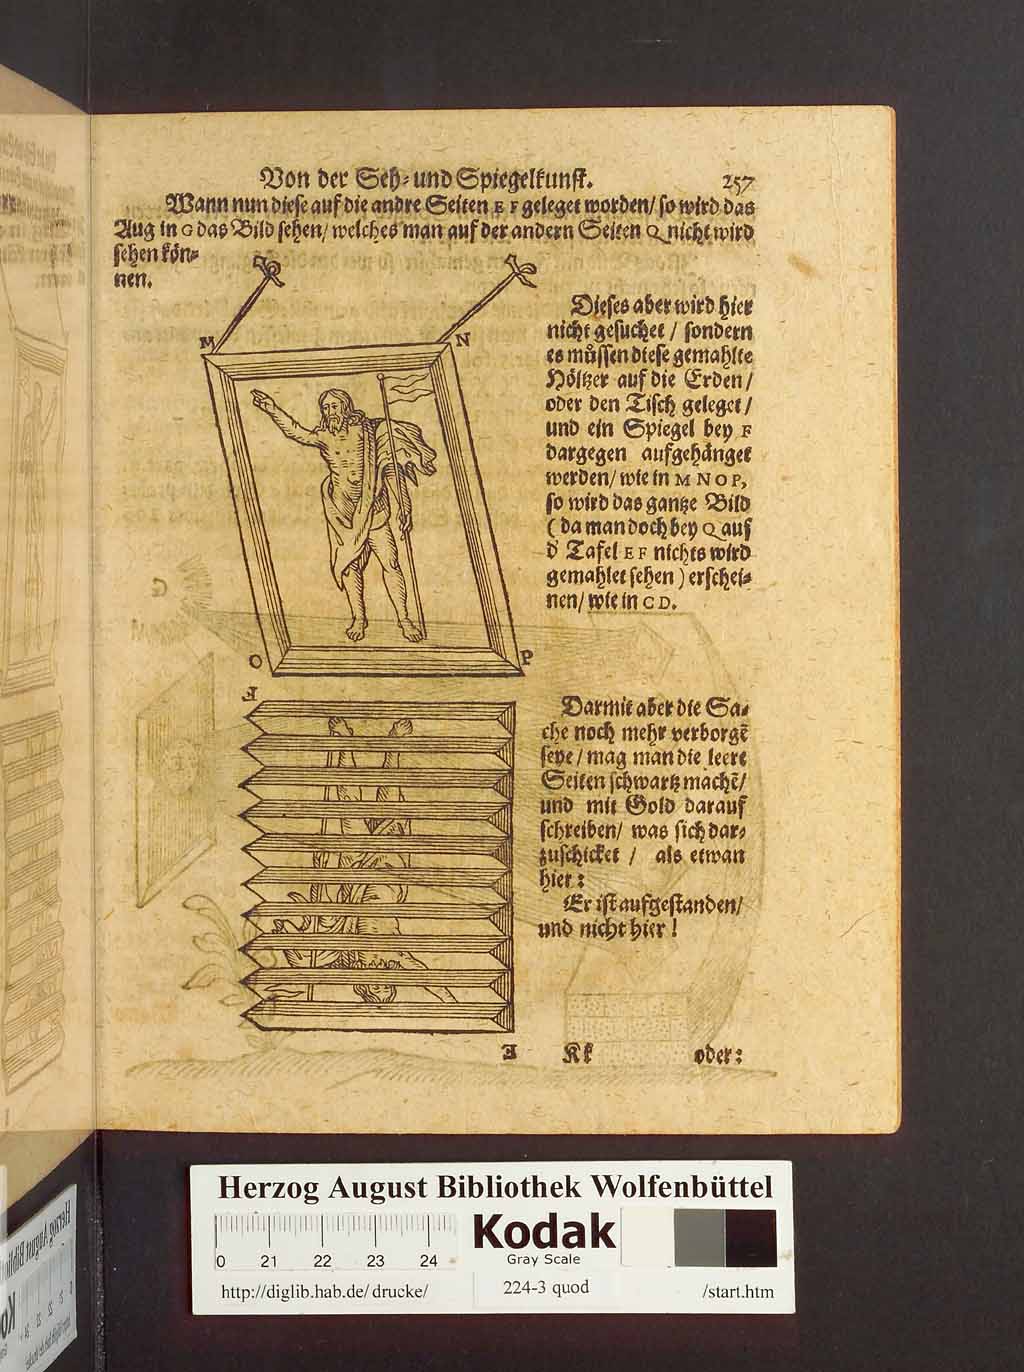 Von der Seh- und Spiegelkunst. 257
Wann nun diese auf die andre Seiten E F geleget worden/ so wird das
Aug in G das Bild sehen/ welches man auf der andern Seiten Q nicht wird
sehen kön-
nen.
M N
Dieses aber wird hier
nicht gesuchet / sondern
es müssen diese gemahlte
Höltzer auf die Erden/
oder den Tisch geleget/
und ein Spiegel bey F
dargegen aufgehänget
werden/ wie in M N O P,
so wird das gantze Bild
( da man doch bey Q auf
d' Tafel E F nichts wird
gemahlet sehen ) erschei-
nen/ wie in C D.
O P
F
Darmit aber die Sa-
che noch mehr verborgē
seye / mag man die leere
Seiten schwartz machē/
und mit Gold darauf
schreiben/ was sich dar-
zuschicket / als etwan
hier:
Er ist aufgestanden/
und nicht hier!
E
Kk oder:
Herzog August Bibliothek Wolfenbüttel
0 21 22 23 24
Kodak
Gray Scale
http://diglib.hab.de/ drucke/ 224-3 quod /start.htm